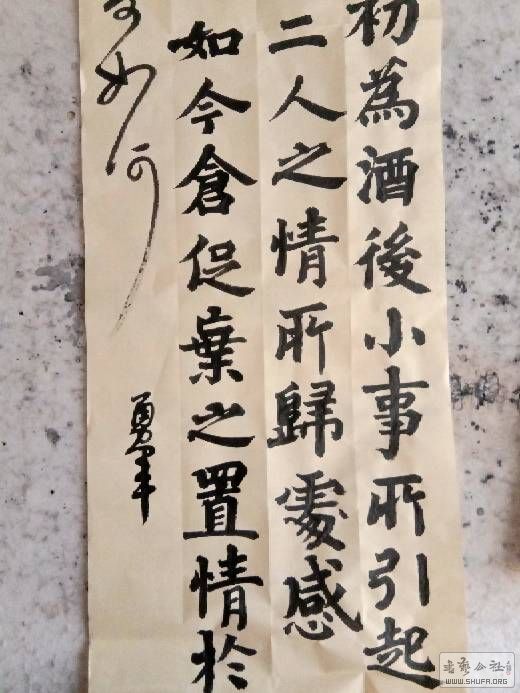 初為酒後小事所引起
二人之情所歸處感
如今倉促棄之置情於
如何
勇軍
书艺公社
WWW.SHUFA.ORG